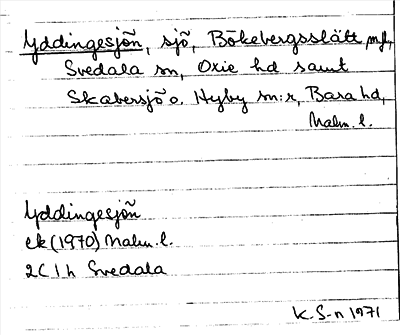 Yddingesjön, sjö, Bökebergsslätt mfl,
Svedala sn, Oxie hd samt
Skabersjö o. Hyby sn:r, Bara hd,
Malm. l.
Yddingesjön
ek (1970) Malm. l.
2C 1h Svedala
K. S-n 1971